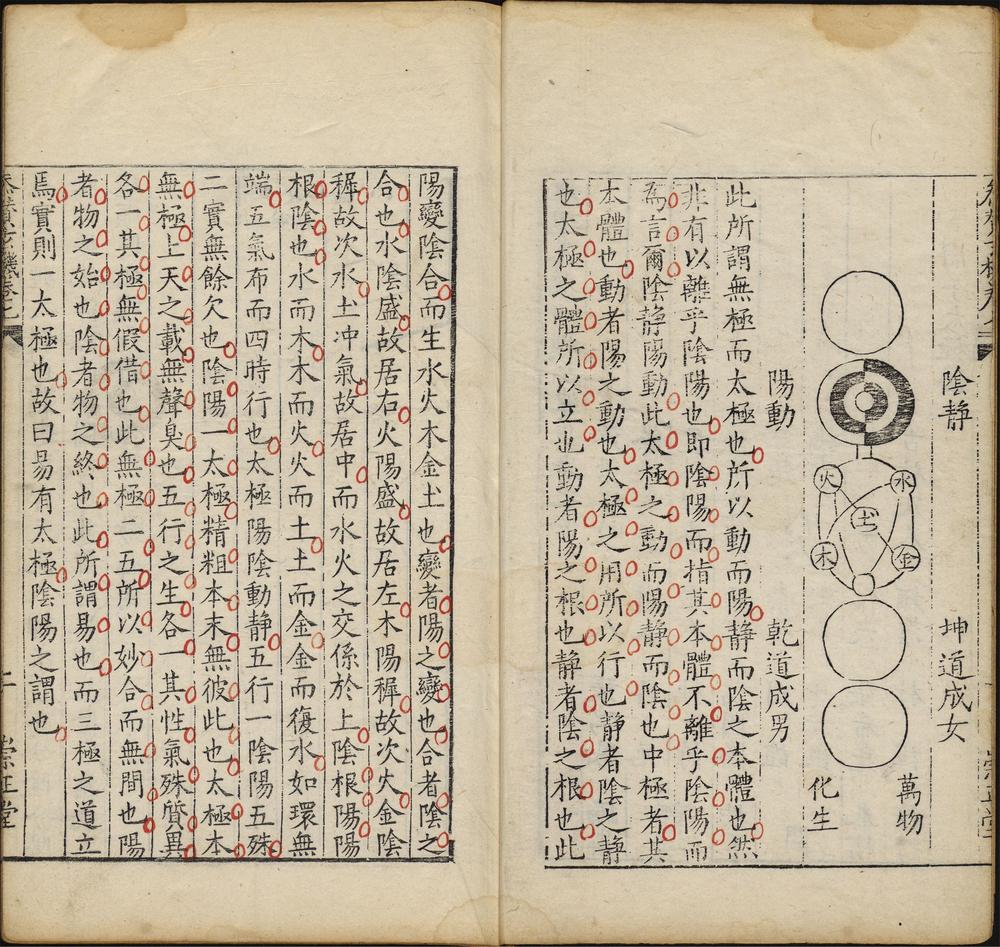 陰静
坤道成女
萬物
水
火
土
金
木
化生
陽動
乾道成男
此所謂無極而太極也所以動而陽静而陰之本體也然
非有以離乎陰陽也即陰陽而指其本體不離乎陰陽而
為言爾陰静陽動此太極之動而陽静而陰也中極者其
本體也動者陽之動也太極之用所以行也静者陰之静
也太極之體所以立也動者陽之根也静者陰之根也此
陽變陰合而生水火木金土也變者陽之變也合者陰之
合也水陰盛故居右火陽盛故居左木陽穉故次火金陰
穉故次水土冲氣故居中而水火之交係於上陰根陽陽
根陰也水而木木而火火而土土而金金而復水如環無
端五氣布而四時行也太極陽陰動静五行一陰陽五殊
二實無餘欠也陰陽一太極精粗本末無彼此也太極本
無極上天之載無聲臭也五行之生各一其性氣殊質異
各一其極無假借也此無極二五所以妙合而無間也陽
者物之始也陰者物之終也此所謂易也而三極之道立
焉實則一太極也故曰易有太極陰陽之謂也
卷七
崇正堂